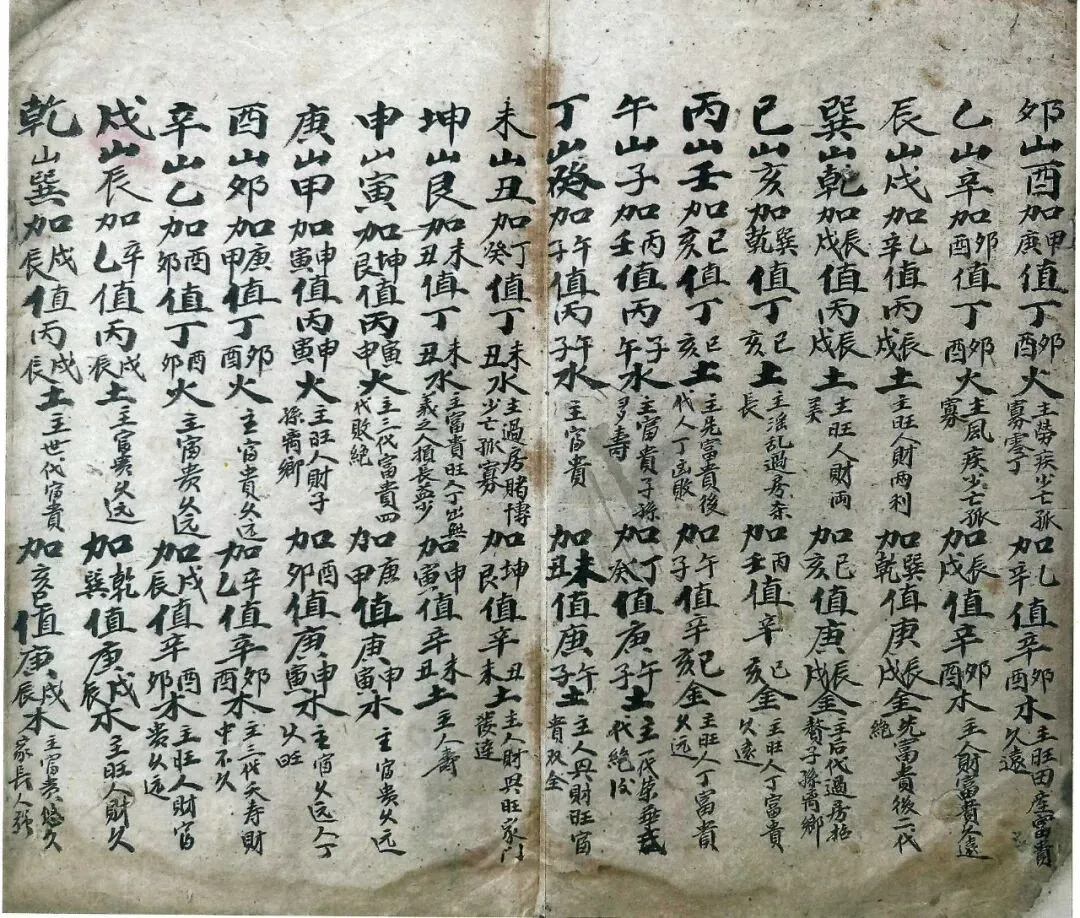 夘山酉加甲庚值丁夘酉火主勞疾少亡孤寡零丁加乙辛值辛夘酉木主旺田產富貴久遠
乙山辛加夘酉值丁夘酉火主風疾少亡孤寡加辰戌值辛夘酉木主人財富貴久遠
辰山戌加乙辛值丙辰戌土主旺人財兩利加巽乾值庚辰戌金先富貴後二代絕
巽山乾加辰戌值丙辰戌土主旺人財兩美加巳亥值庚辰戌金主后代過房招贅子孫离鄉
巳山亥加巽乾值丁巳亥土主淫乱過房
長加丙壬值辛巳亥金主旺人丁富貴久遠
丙山壬加巳亥值丁巳亥土主先富貴後代人丁凶敗加午子值辛巳亥金主旺人丁富貴久远
午山子加丙壬值丙子午水主富貴子孫多壽加丁癸值庚午子土主一代榮華代絕
丁山癸加午子值丙午子水主富貴加未丑值庚午子土主人興財旺富貴双全
未山丑加丁癸值丁未丑水主過房賭博少亡孤寡加坤艮值辛丑未土主人財興旺家門
坤山艮加未丑值丁未丑水主富貴旺人丁出興義之人損長益少加申寅值辛未丑土主人壽
申山寅加坤艮值丙寅申火主三代富貴四代敗絕加庚甲值庚申寅木主富貴久远
庚山甲加申寅值丙申寅火主旺人財子孫离鄉加酉夘值庚申寅木主富久远人丁火旺
酉山夘加庚甲值丁夘酉火主富貴久远加辛乙值辛夘酉木主三代夭寿財中不久
辛山乙加酉夘值丁酉夘火主富貴久远加戌辰值辛酉夘木主旺人財富貴久远
戌山辰加辛乙值丙戌辰土主富貴久远加乾巽值庚戌辰木主旺人財久
乾山巽加戌辰值丙戌辰土主世代富貴加巳亥值庚戌辰木主富貴悠久家長人